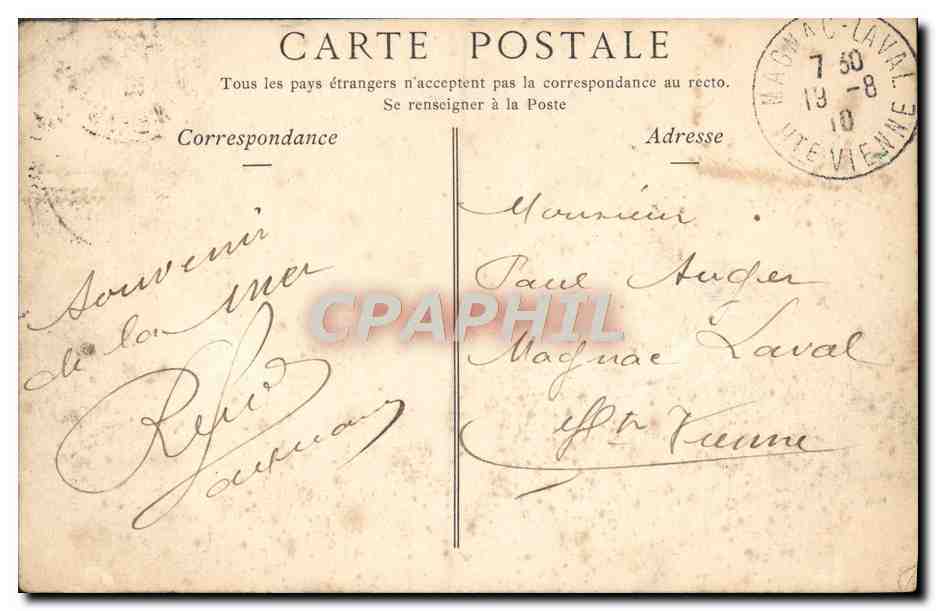 CARTE POSTALE
Tous les pays étrangers n'acceptent pas la correspondance au recto.
Se renseigner à la Poste
Correspondance
Adresse
MAGNAC-LAVAL
7 30
19 -8
10
HTE VIENNE
Souvenir
de la mer
Monsieur
Paul Auger
Magnac Laval
Hte Vienne
CPAPHIL